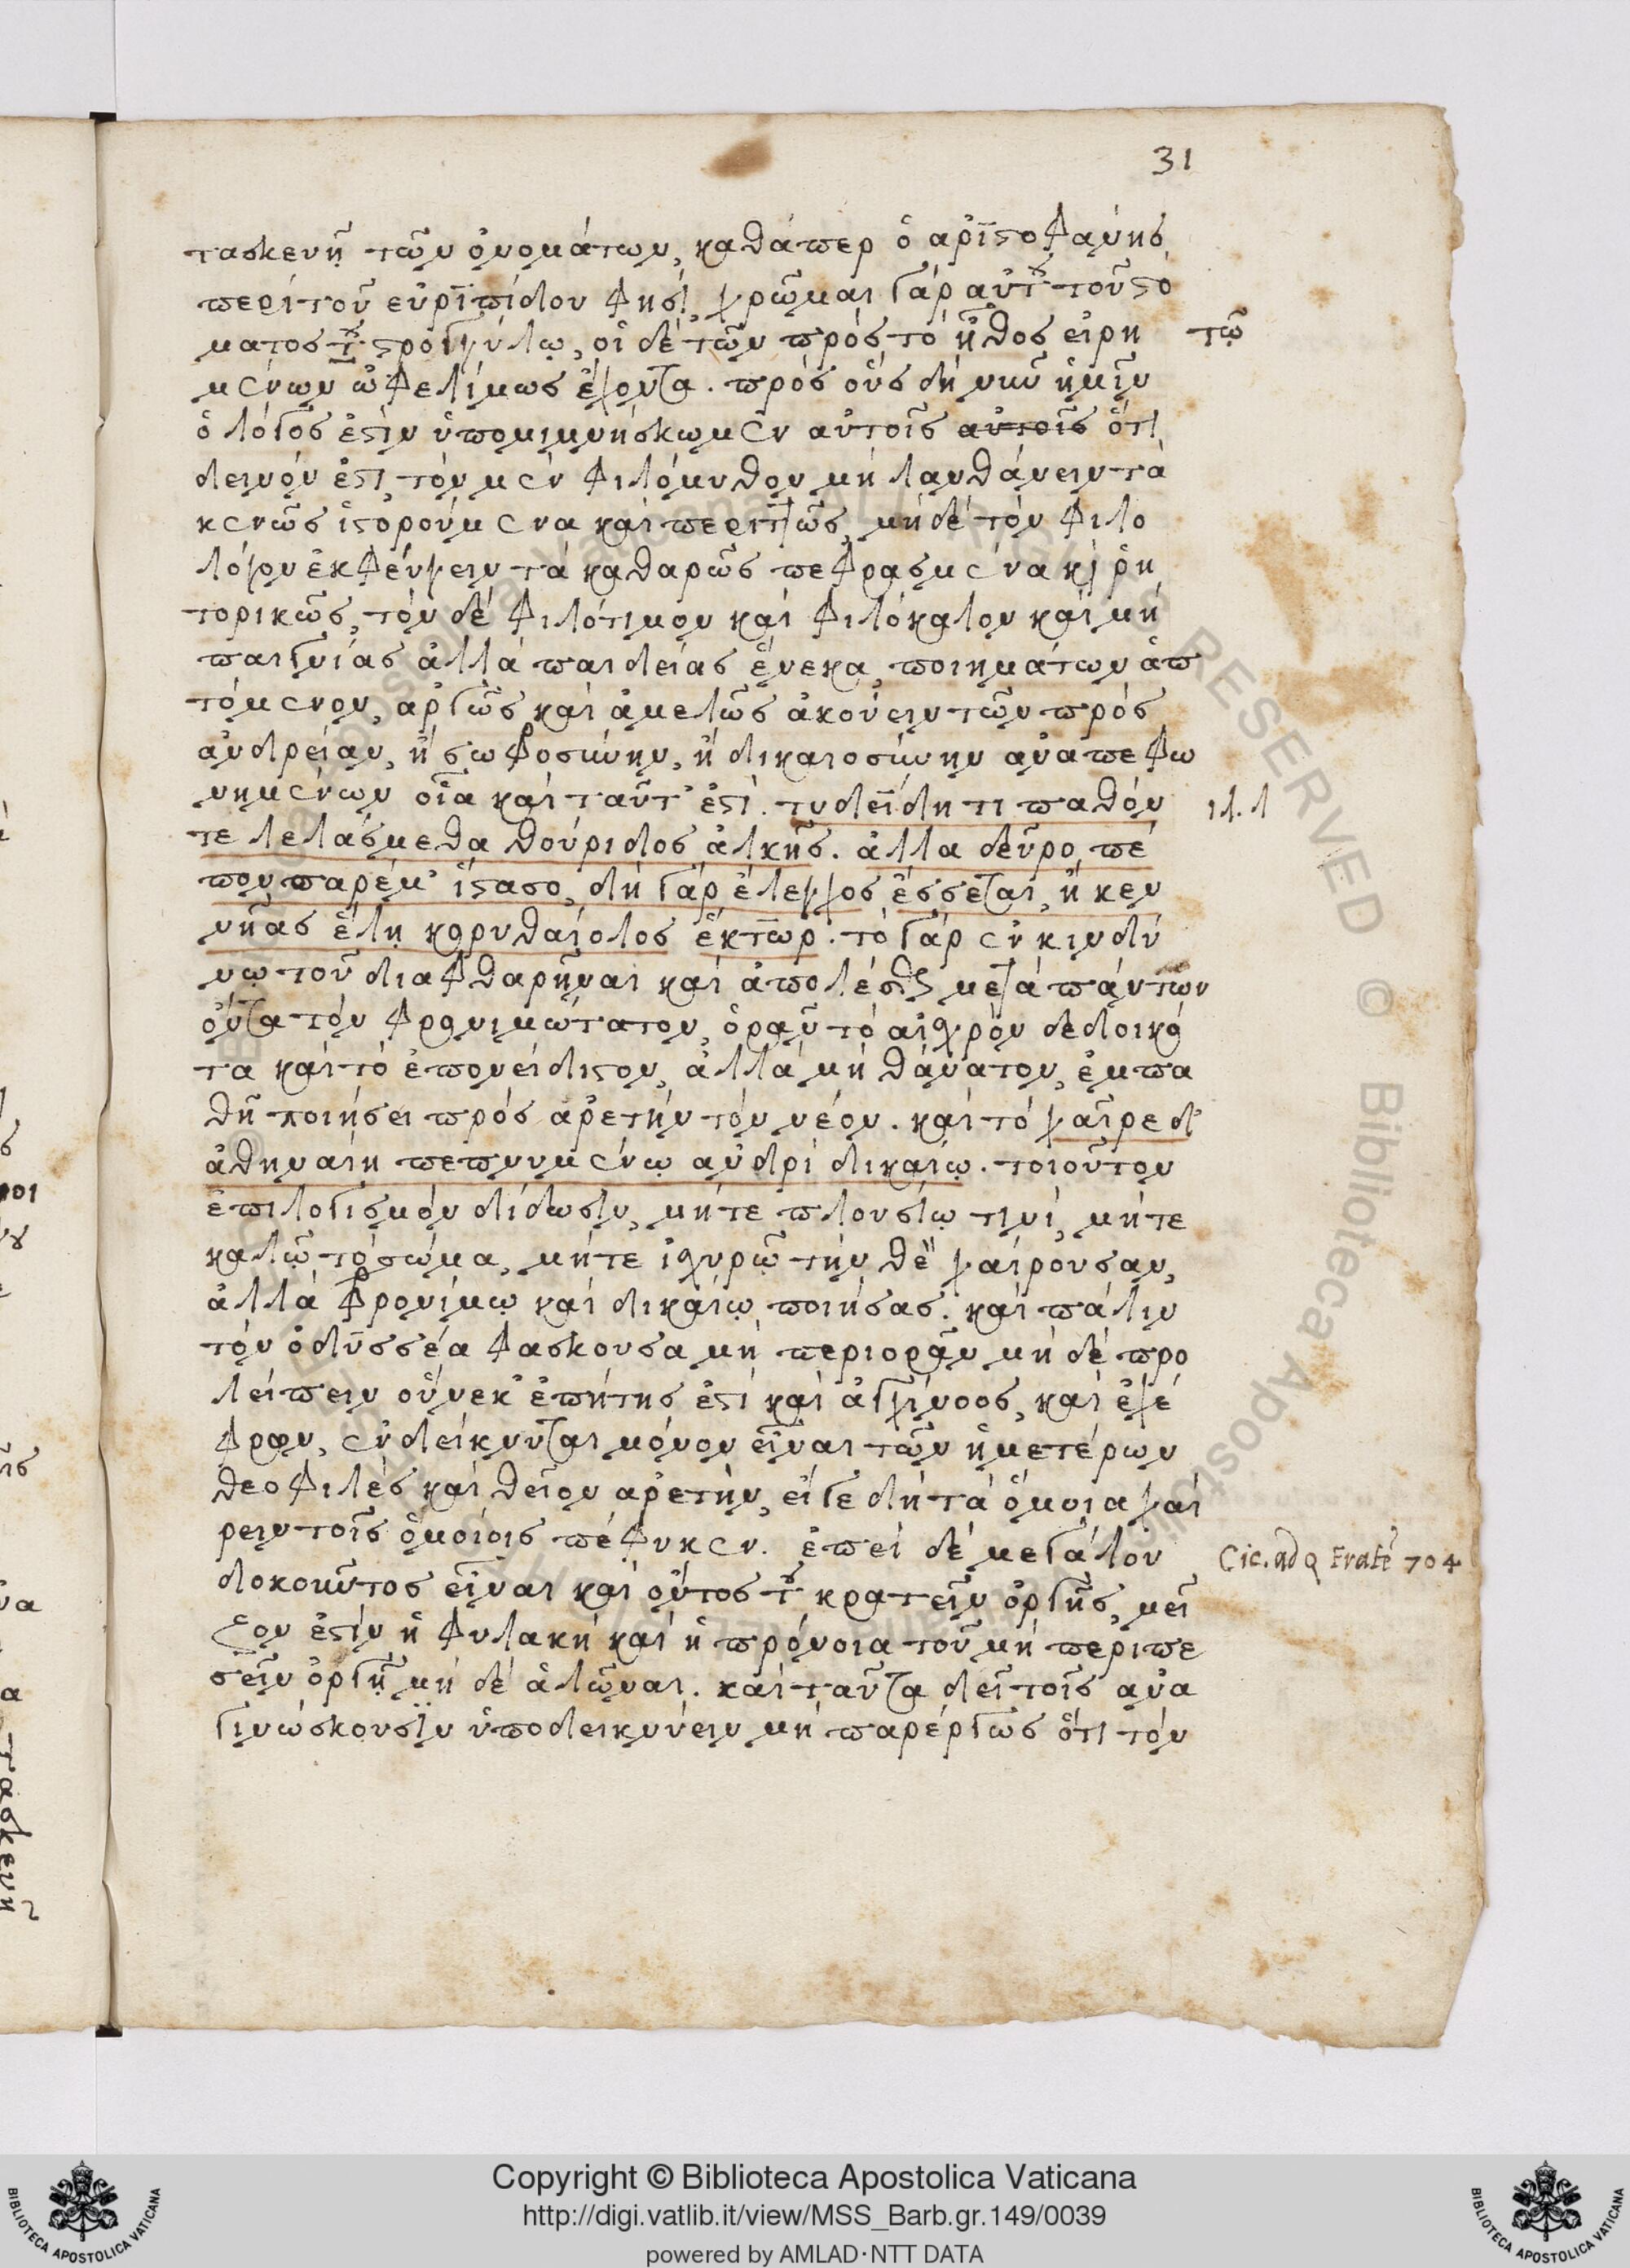 31
τασκευῇ τῶν ὀνομάτων, καθάπερ ὁ ἀριστοφάνης
περὶ τοῦ εὐριπίδου φησί, χρῶμαι γάρ αὐτοῦ τοῦ στό
ματος τοῦ στρογγύλῳ, οἱ δὲ τῶν πρὸς τὸ ἦθος εἰρη
τῷ
μένων ὠφελίμως ἔχοντα. πρὸς οὓς δὴ νῦν ἡμῖν
ὁ λόγος ἐστὶν ὑπομιμνήσκωμεν αὐτοῖς αὐτοῖς ὅτι
δεινόν ἐστι, τὸν μὲν φιλόμυθον μὴ λανθάνειν τὰ
κενῶς ἱστορούμενα καὶ περιττῶς, μηδὲ τὸν φιλο
λόγον ἐκφεύγειν τὰ καθαρῶς πεφρασμένα καὶ ῥη
τορικῶς, τὸν δὲ φιλότιμον καὶ φιλόκαλον καὶ μὴ
παιγνίας ἀλλὰ παιδείας ἕνεκα, ποιημάτων ἁπ
τόμενον, ἀργῶς καὶ ἀμελῶς ἀκούειν τῶν πρὸς
ἀνδρείαν, ἢ σωφροσύνην, ἢ δικαιοσύνην ἀναπεφω
νημένων οἷα καὶ ταῦτ' ἐστί. τυδείδη τι παθόν
ιλ. λ
τε λελάσμεθα θούριδος ἀλκῆς. ἀλλα δεῦρο, πέ
πον παρέμ' ἵστασο, δὴ γὰρ ἔλεγχος ἔσσεται, ἤ κεν
νῆας ἕλῃ κορυθαίολος ἕκτωρ. τὸ γὰρ ἐν κινδύ
νῳ τοῦ διαφθαρῆναι καὶ ἀπολέσθαι μετὰ πάντων
ὄντα τὸν φρονιμώτατον, ὁρᾶν τὸ αἰσχρὸν δεδοικό
τα καὶ τὸ ἐπονείδιστον, ἀλλὰ μὴ θάνατον, ἐμπα
θῆ ποιήσει πρὸς ἀρετὴν τὸν νέον. καὶ τὸ χαῖρε δ'
ἀθηναίη πεπνυμένῳ ἀνδρὶ δικαίῳ. τοιοῦτον
ἐπιλογισμὸν δίδωσιν, μήτε πλουσίῳ τινί, μήτε
καλῷ τὸ σῶμα, μήτε ἰσχυρῷ τὴν θεὸν χαίρουσαν,
ἀλλὰ φρονίμῳ καὶ δικαίῳ ποιήσας. καὶ πάλιν
τὸν ὀδυσσέα φασκουσα μὴ περιορᾶν μὴ δὲ προ
λείπειν οὕνεκ' ἐπήτης ἐστὶ καὶ ἀγχίνοος, καὶ ἐχέ
φρων, ἐνδείκνυται μόνον εἶναι τῶν ἡμετέρων
θεοφιλὲς καὶ θεῖον ἀρετὴν, εἴγε δὴ τὰ ὅμοια χαί
ρειν τοῖς ὁμοίοις πέφυκεν. ἐπεὶ δὲ μεγάλου
Cic. ad Q Fratrē 704
δοκοῦντος εἶναι καὶ οὗτος τοῦ κρατεῖν ὀργῆς, μεῖ
ζον ἐστὶν ἡ φυλακὴ καὶ ἡ πρόνοια τοῦ μὴ περιπε
σεῖν ὀργῇ μὴ δὲ ἁλῶναι. καὶ ταῦτα δεῖ τοῖς ἀνα
γινώσκουσιν ὑποδεικνύειν μὴ παρέργως ὅτι τὸν
Copyright © Biblioteca Apostolica Vaticana
http://digi.vatlib.it/view/MSS_Barb.gr.149/0039
powered by AMLAD·NTT DATA
BIBLIOTECA APOSTOLICA VATICANA
BIBLIOTECA APOSTOLICA VATICANA